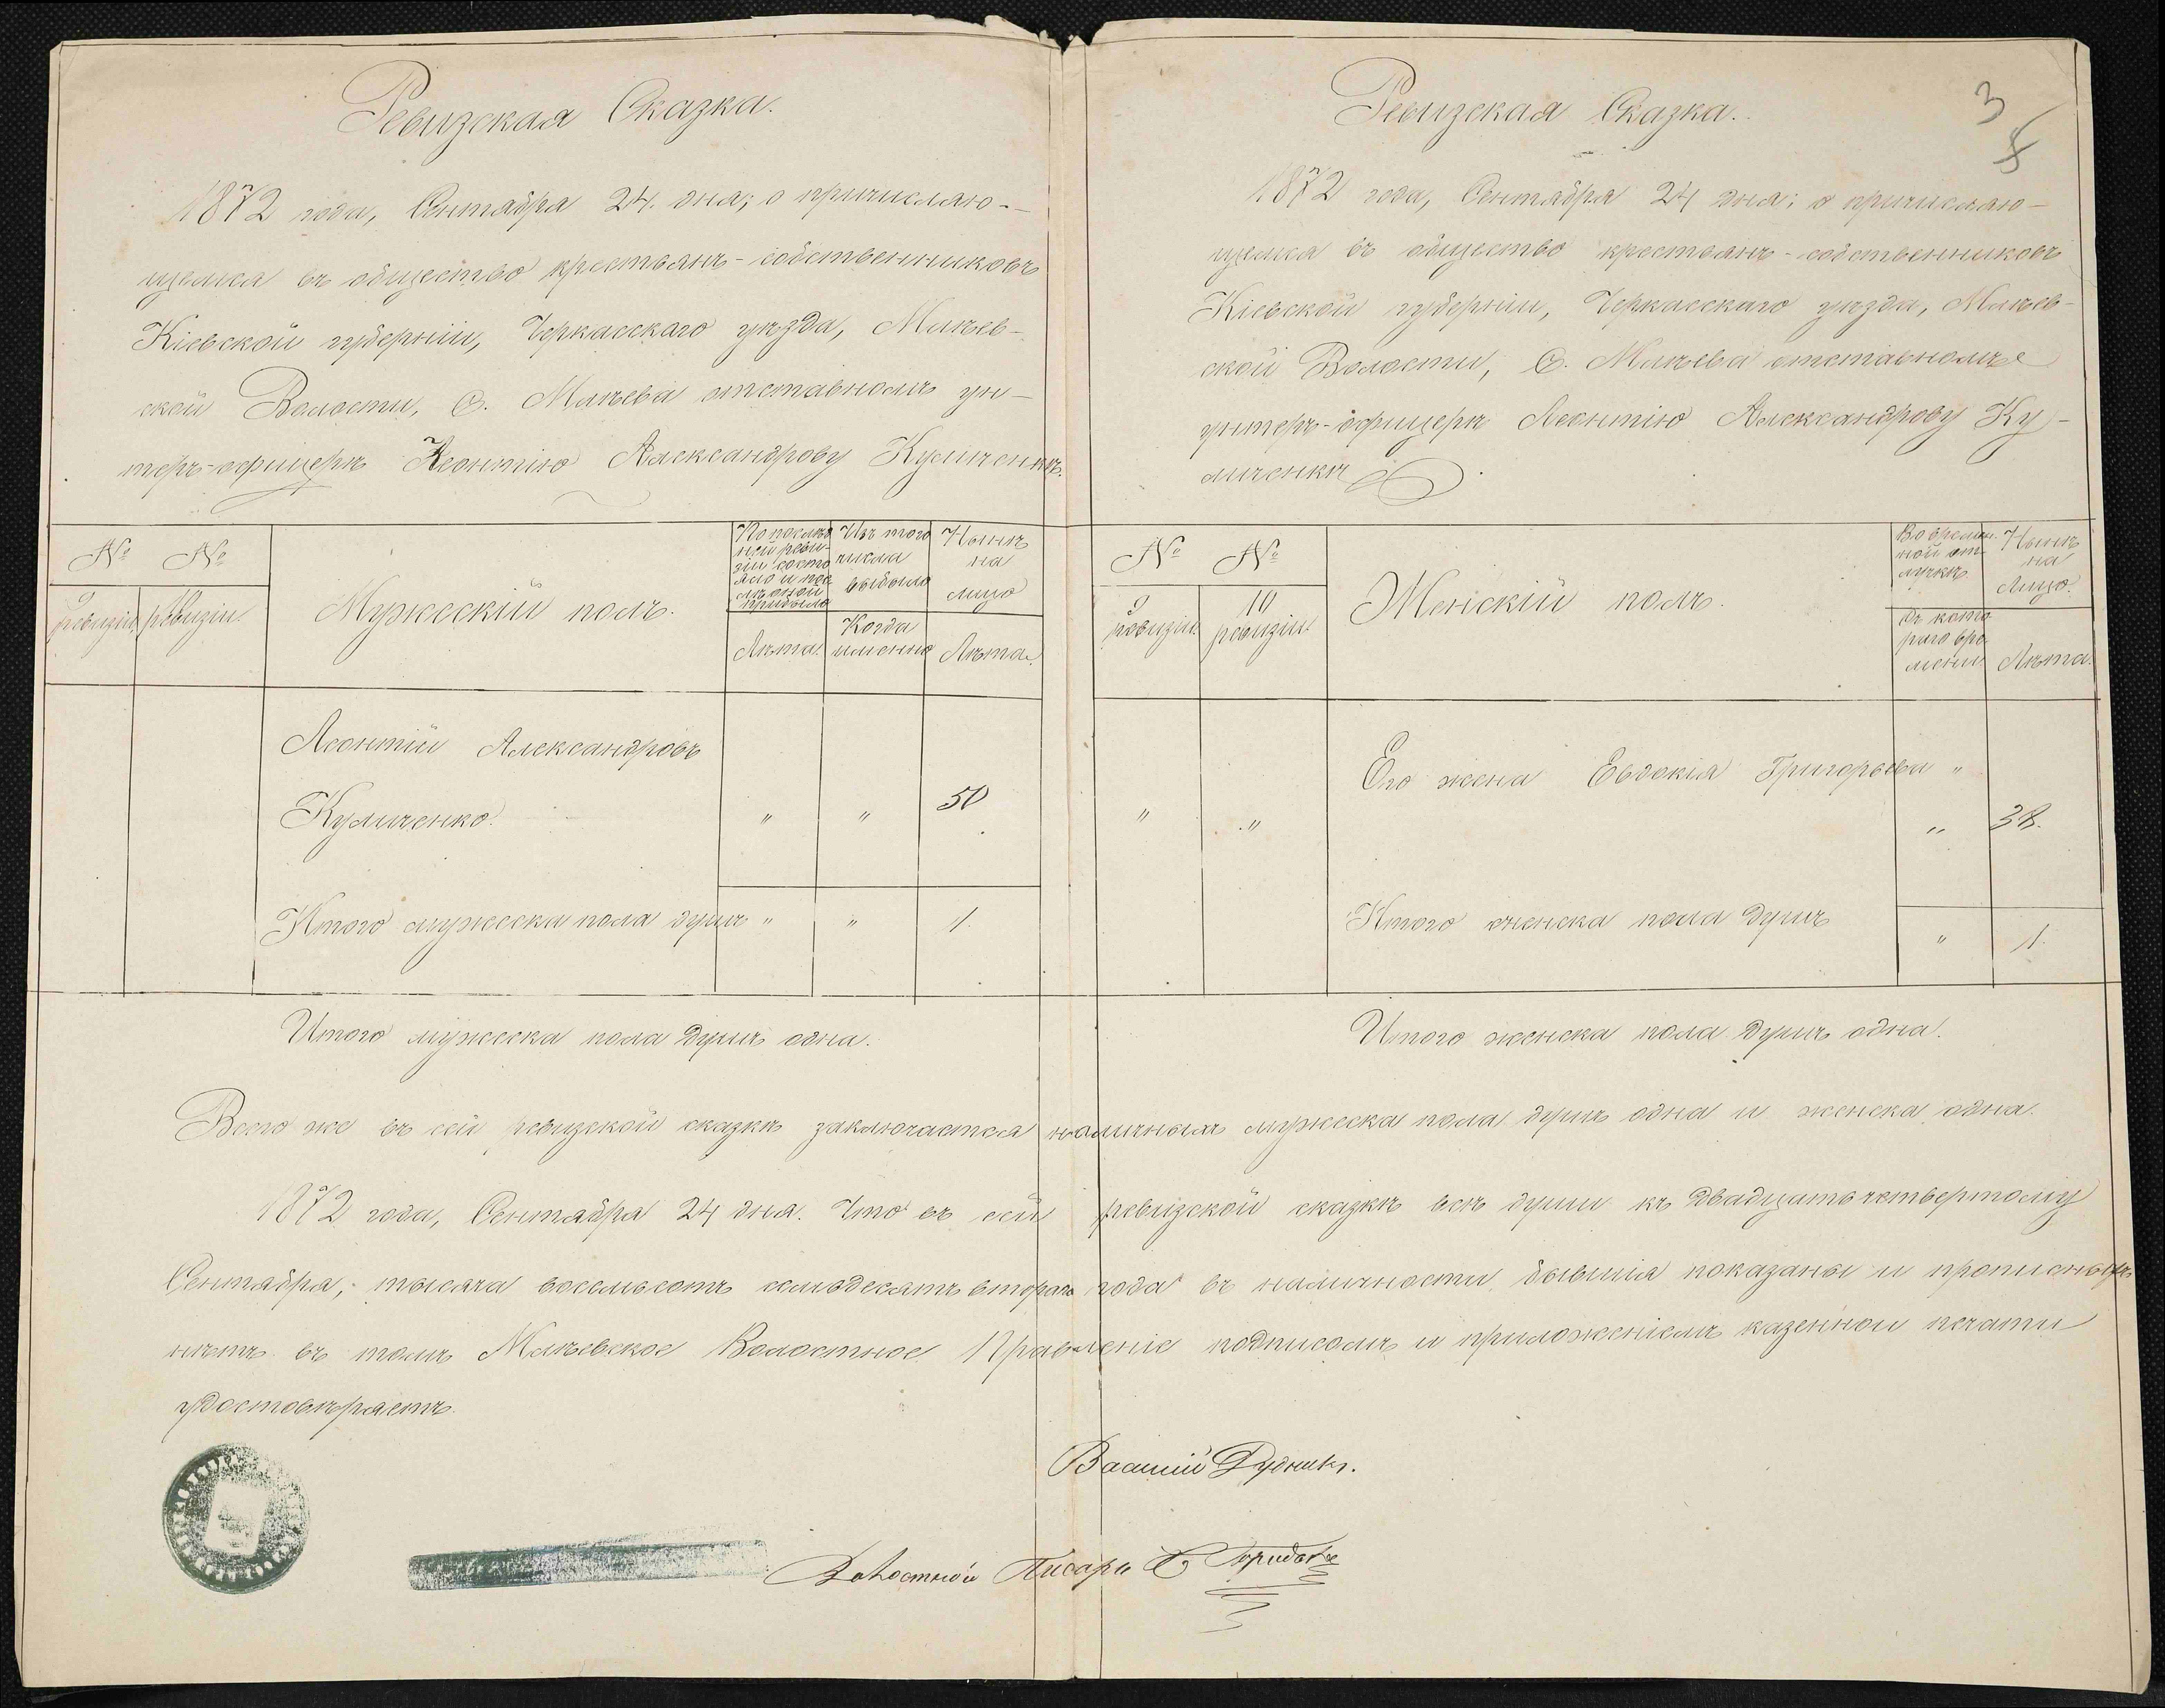 Ревизская Сказка.
1872 года, Сентября 24. дня; о причисляю-
щемся въ общество крестьянъ-собственниковъ
Кіевской губерніи, Черкасскаго уѣзда, Млѣев-
ской Волости, С. Млѣева отставномъ ун-
теръ-офицерѣ Леонтію Александрову Куличенкѣ.
№ №
9 ревизіи. 10 ревизіи.
Мужескій полъ.
По послѣд-
ней реви-
зіи состо
яло и пос
лѣ оной
прибыло
Лѣта.
Изъ того
числа
выбыло
Когда
именно
Нынѣ
на
лицо
Лѣта.
Леонтій Александровъ
Куличенко. " " 50
Итого мужеска пола душъ " " 1.
Итого мужеска пола душъ одна.
Ревизская Сказка.
3
1872 года, Сентября 24 дня; о причисляю-
щемся въ общество крестьянъ-собственниковъ
Кіевской губерніи, Черкасскаго уѣзда, Млѣев-
ской Волости, С. Млѣева отставномъ
унтеръ-офицерѣ Леонтію Александрову Ку-
личенкѣ
№ №
9 ревизіи. 10 ревизіи.
Женскій полъ.
Во времен-
ной от-
лучкѣ
Съ кото
раго вре
мени.
Нынѣ
на
лицо.
Лѣта.
Его жена Евдокія Григорьева "
" " " 38.
Итого женска пола душъ " 1.
Итого женска пола душъ одна.
Всего же въ сей ревизской сказкѣ заключается наличныхъ мужеска пола душъ одна и женска одна.
1872 года, Сентября 24 дня. Что въ сей ревизской сказкѣ всѣ души къ двадцать четвертому
Сентября, тысяча восемьсотъ семьдесятъ втораго года въ наличности бывшія показаны и прописныхъ
нѣтъ въ томъ Млѣевское Волостное Правленіе подписомъ и приложеніемъ казенной печати
удостовѣряетъ.
Василій Дудникъ.
Волостной Писарь